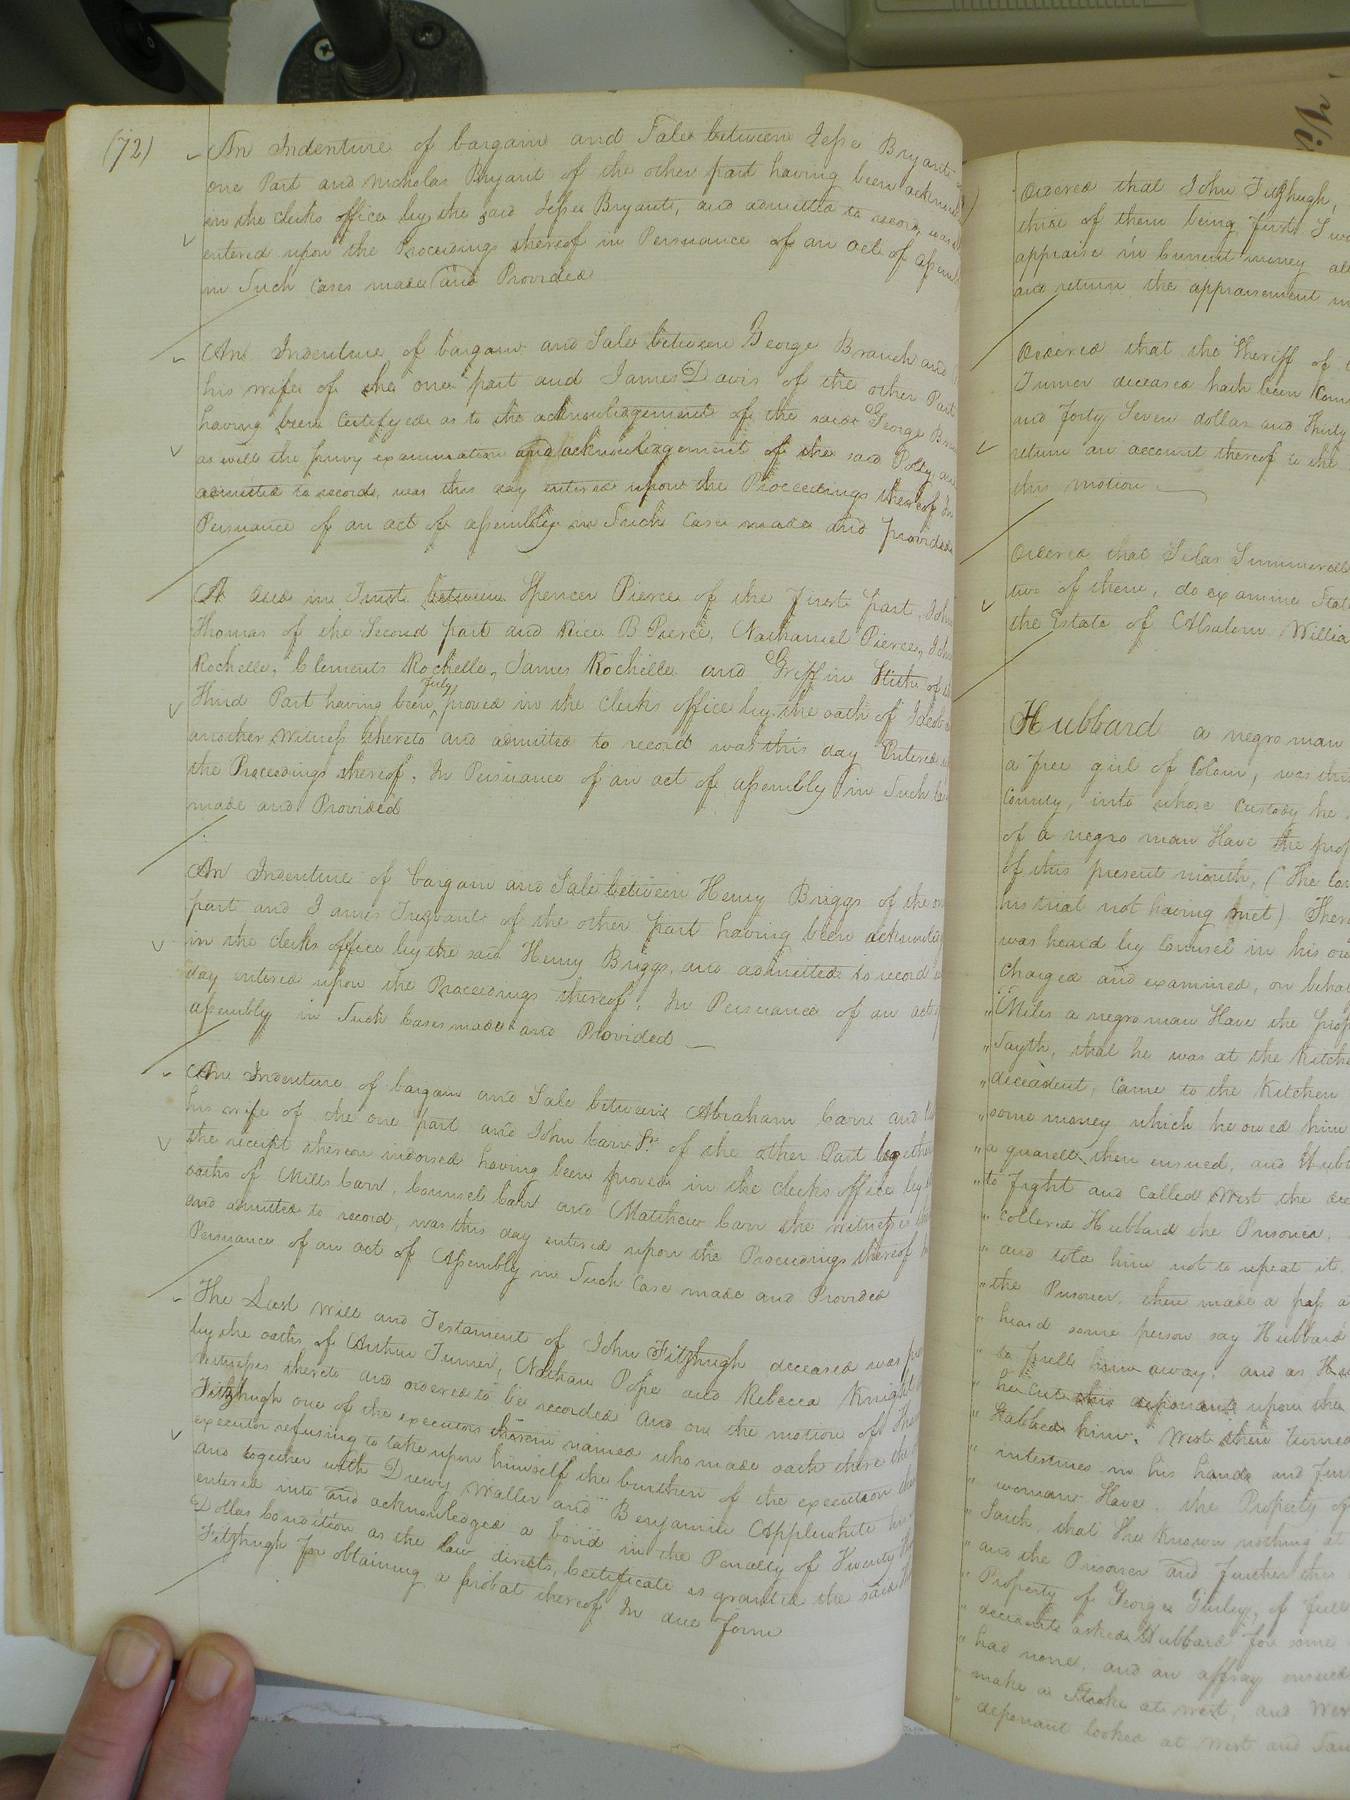 (72)
An Indenture of bargain and Sale between Jesse Bryant
one Part and Nicholas Bryant of the other part having been acknowl
in the clerks office by the said Jesse Bryant, and admitted to record, was
entered upon the Proceedings thereof in Persuance of an act of assem
in Such Cases made and Provided
An Indenture of bargain and Sale between George Branch and
his wife of the one part and James Davis of the other Part
having been Certifyed as to the acknowledgement of the said George Bran
as well the privy examination and acknowledgement of the said Polly and
admitted to record, was this day entered upon the Proceedings thereof In
Persuance of an act of assembly in Such Case made and provided
A deed in Trust between Spencer Pierce of the first part, John
Thomas of the Second part and Rice B Pierce, Nathaniel Pierce, John
Rochelle, Clements Rochelle, James Rochelle and Griffin Stith of the
Third Part having been fully proved in the clerks office by the oath of Jacob
another Witness thereto and admitted to record was this day Entered
the Proceedings thereof, In Persuance of an act of assembly in Such
made and Provided
An Indenture of bargain and Sale between Henry Briggs of the
part and James Trezvant of the other part having been acknowled
in the clerks office by the said Henry Briggs, and admitted to record
day entered upon the Proceedings thereof, In Persuance of an act
assembly in Such Cases made and Provided
An Indenture of bargain and Sale between Abraham Carr and
his wife of the one part and John Carr Sr. of the other Part together
the receipt thereon indorsed having been proved in the clerks office by
oaths of Mills Carr, Counsel Carr and Matthew Carr the witnesses
and admitted to record, was this day entered upon the Proceedings thereof
Persuance of an act of Assembly in Such Case made and Provided
The Last Will and Testament of John Fitzhugh deceased was
by the oaths of Arthur Turner, Nathan Pope and Rebecca Knight
witnesses thereto and ordered to be recorded And on the motion of
Fitzhugh one of the executors therein named who made oath there
executor refusing to take upon himself the burthen of the execution
and together with Drewry Waller and Benjamin Applewhite
entered into and acknowledged a bond in the Penalty of Twenty
Dollars Condition as the law directs, Certificate is granted the said
Fitzhugh for obtaining a probat thereof In due form
Ordered that John Fitzhugh,
three of them being first Swo
appraise in Current money all
and return the appraisement
Ordered that the Sheriff of
Turner deceased hath been Com
and Forty Seven dollars and Thirty
return an account thereof to the
this motion
Ordered that Silas Summerell
two of them, do examine State
the Estate of Absalom Willia
Hubbard a negro man
a free girl of Colour, was this
County, into whose Custody he
of a negro man Slave the prop
of this present month, (The
his trial not having met)
was heard by Counsel in his
charged and examined, on behal
Miles a negro man Slave the prop
Sayth, that he was at the Kitche
deceadent, Came to the Kitchen
some money which he owed him
a quarell then ensued, and Hubb
to fight and Called West the
collered Hubbard the Prisoner,
and told him not to repeat it.
the Prisoner, then made a pass
heard some person say Hubbard
to pull him away, and as
he cut this deponent upon the
Stabbed him. West then turned
intestines in his hands and
woman Slave, the Property of
Saith, that She knows nothing
and the Prisoner and further this
Property of George Gurley, of full
deceadents asked Hubbard for some
had none, and an affray ensued
make a Stroke at West, and Wes
deponant looked at West and